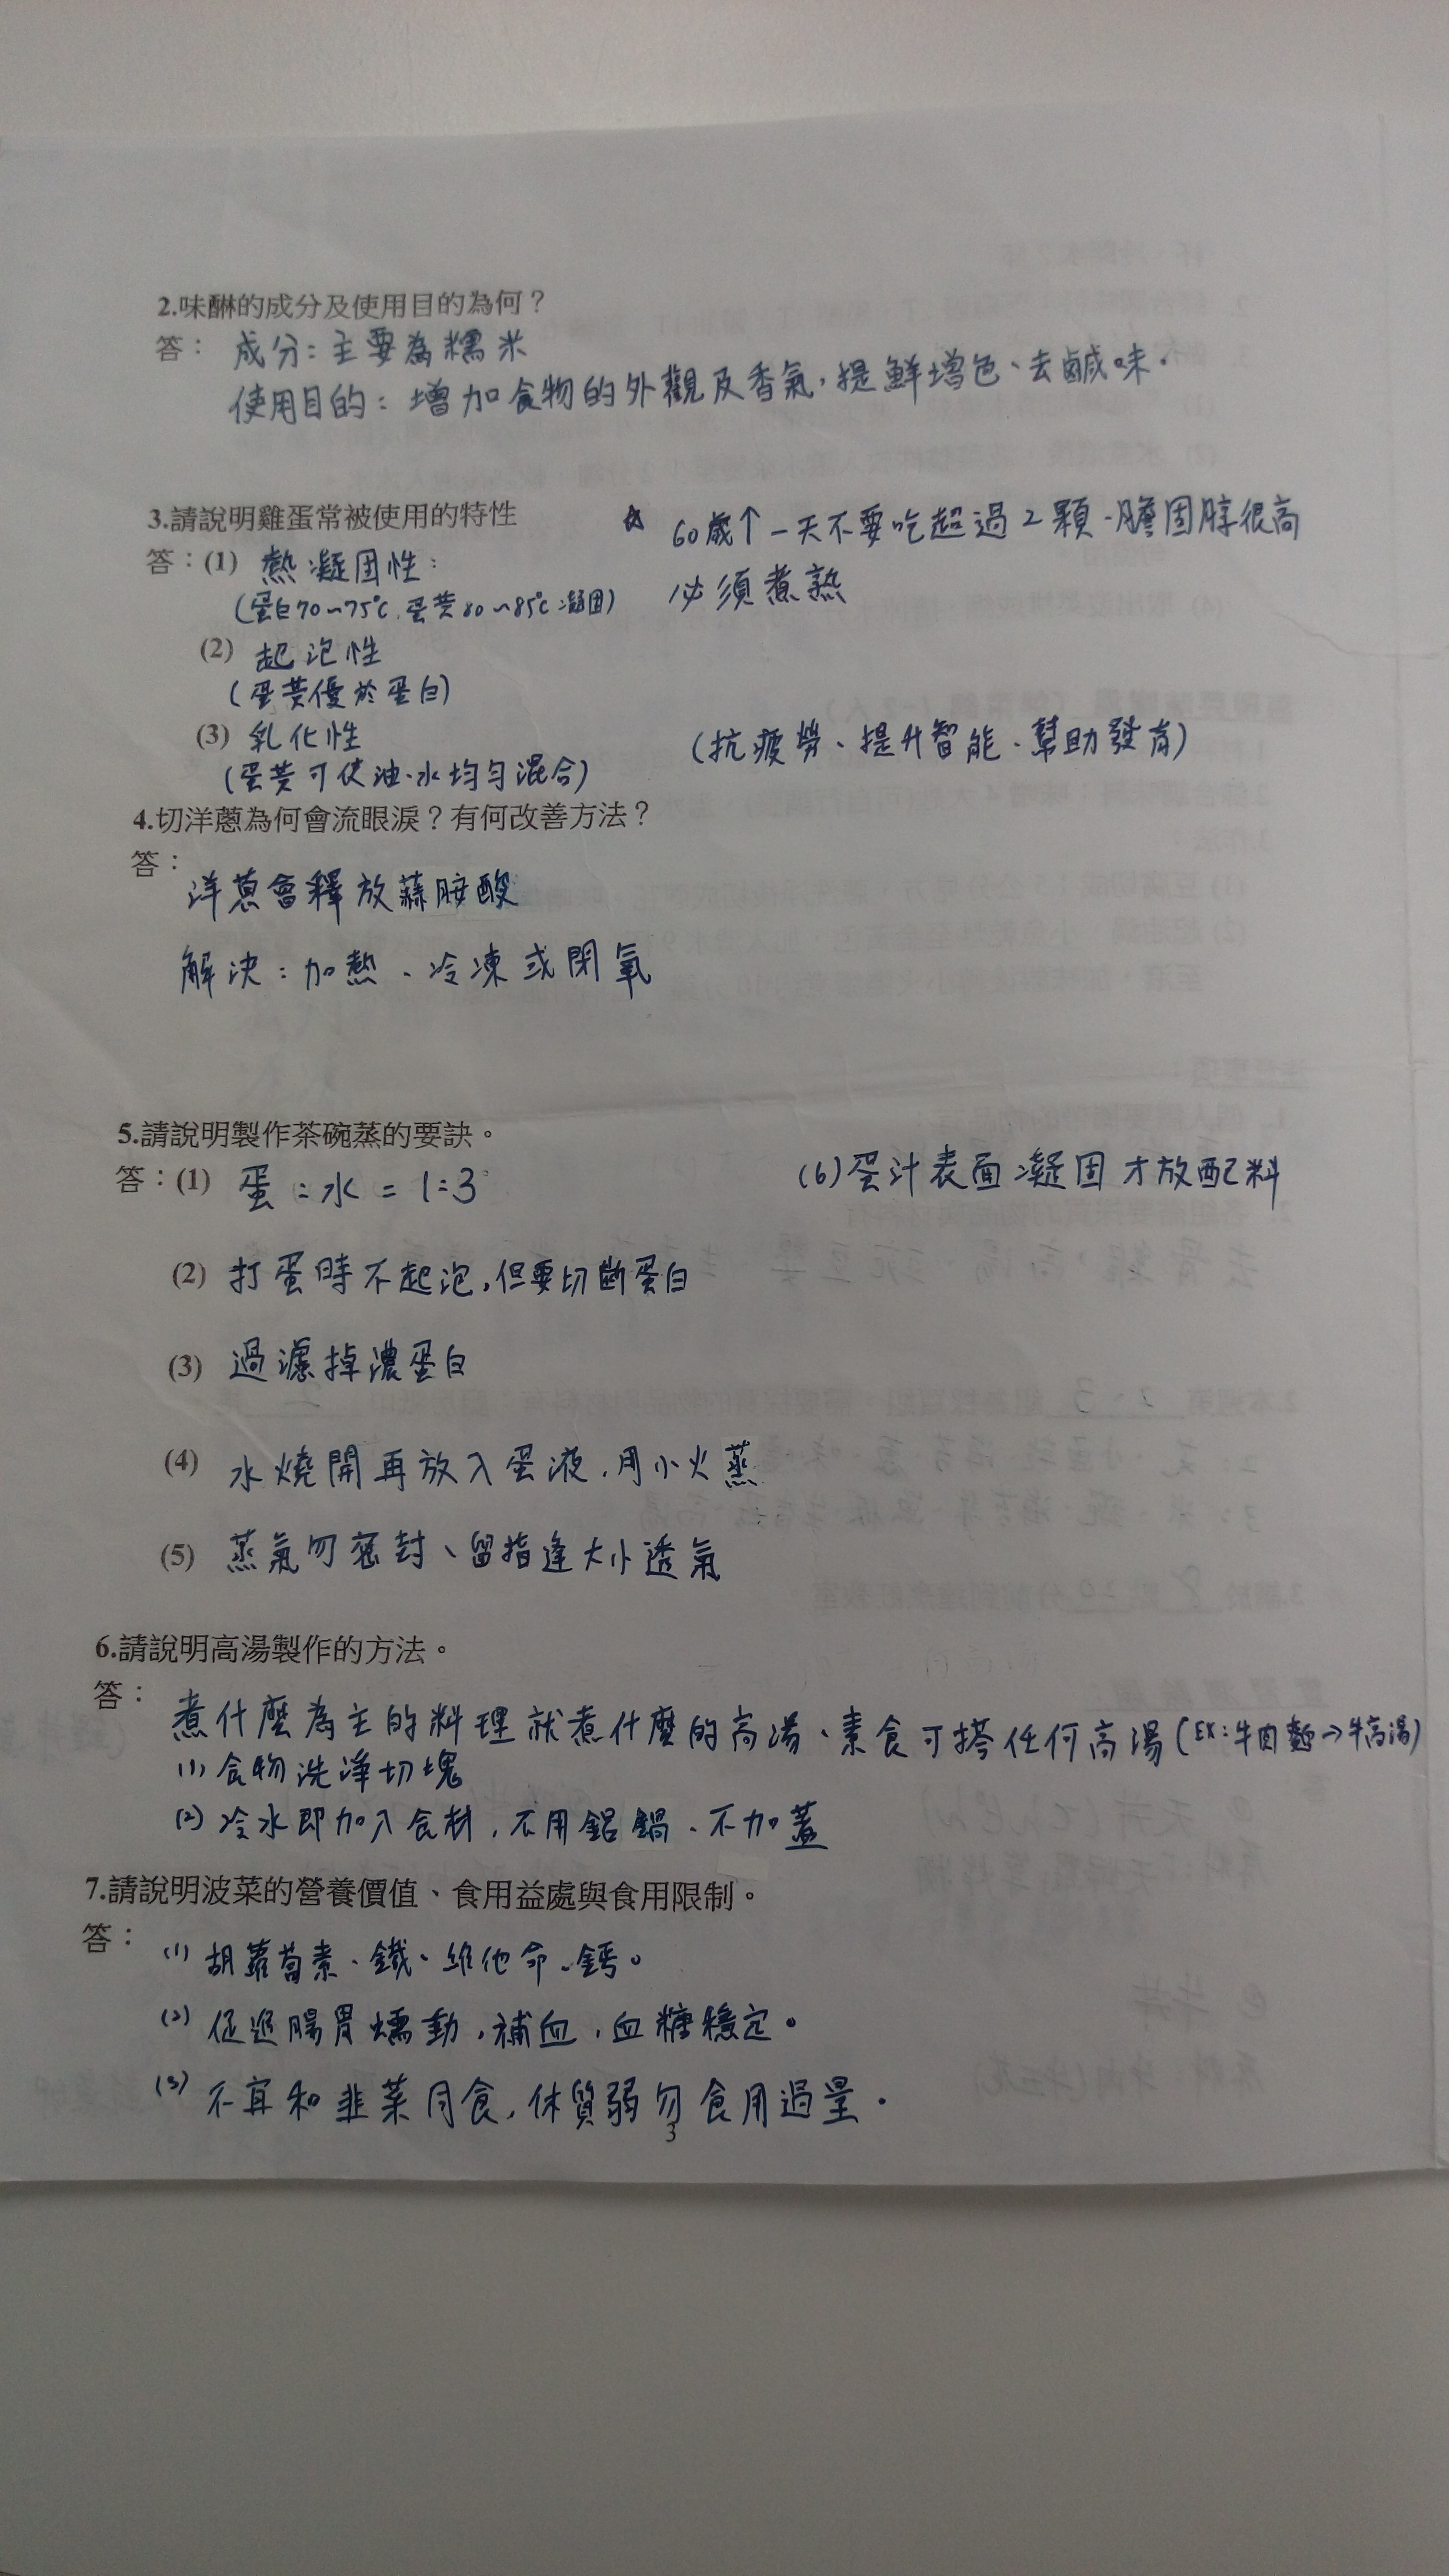 2.味醂的成分及使用目的為何？
答： 成分：主要為糯米
使用目的：增加食物的外觀及香氣，提鮮增色、去鹹味．
3.請說明雞蛋常被使用的特性
☆ 60歲↑一天不要吃超過2顆、膽固醇很高
答：(1) 熱凝固性：
必須煮熟
(蛋白70~75℃,蛋黃80~85℃凝固)
(2) 起泡性
(蛋黃優於蛋白)
(3) 乳化性
(抗疲勞、提升智能、幫助發育)
(蛋黃可使油、水均勻混合)
4.切洋蔥為何會流眼淚？有何改善方法？
答： 洋蔥會釋放蒜胺酸
解決：加熱、冷凍或閉氣
5.請說明製作茶碗蒸的要訣。
答：(1) 蛋：水＝1:3
(6)蛋汁表面凝固才放配料
(2) 打蛋時不起泡,但要切斷蛋白
(3) 過濾掉濃蛋白
(4) 水燒開再放入蛋液,用小火蒸
(5) 蒸氣勿密封、留指逢大小透氣
6.請說明高湯製作的方法。
答： 煮什麼為主的料理就煮什麼的高湯、素食可搭任何高湯(EX:牛肉麵→牛高湯)
(1)食物洗淨切塊
(2)冷水即加入食材,不用鋁鍋、不加蓋
7.請說明波菜的營養價值、食用益處與食用限制。
答： (1) 胡蘿蔔素、鐵、維他命、鈣。
(2) 促進腸胃蠕動,補血,血糖穩定。
(3) 不宜和韭菜同食,体質弱勿食用過量．
3